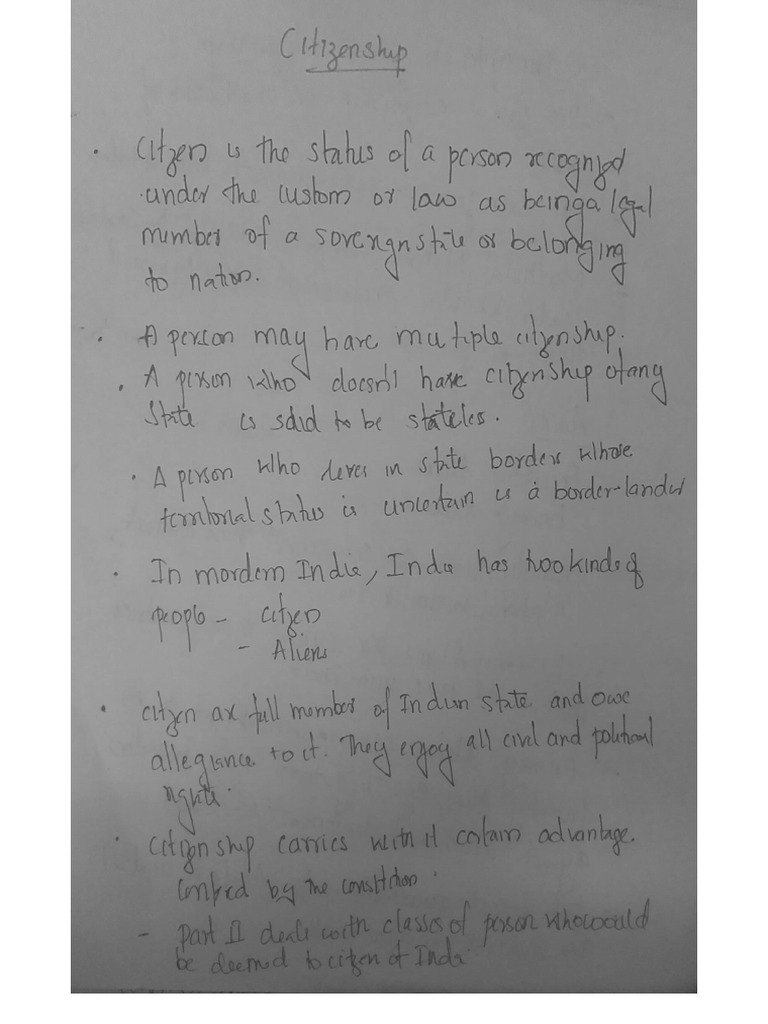 Citizenship
. Citzen is the status of a person recognized
under the custom or law as being a legal
member of a soverngn state or belonging
to nation.
. A person may have multiple citzenship.
. A person who doesn't have citizenship of any
State is said to be stateles.
. A person who lives in state borders whose
territorial status is uncertain is a border-lander
. In mordern India, India has two kinds of
people - Citzen
- Aliens
. citzen are full member of Indian state and owe
allegiance to it. They enjoy all civil and political
rights.
. Citizenship carries with it certain advantage.
by the constitution.
- Part II deals with classes of person who could
be deemed to citizen of India